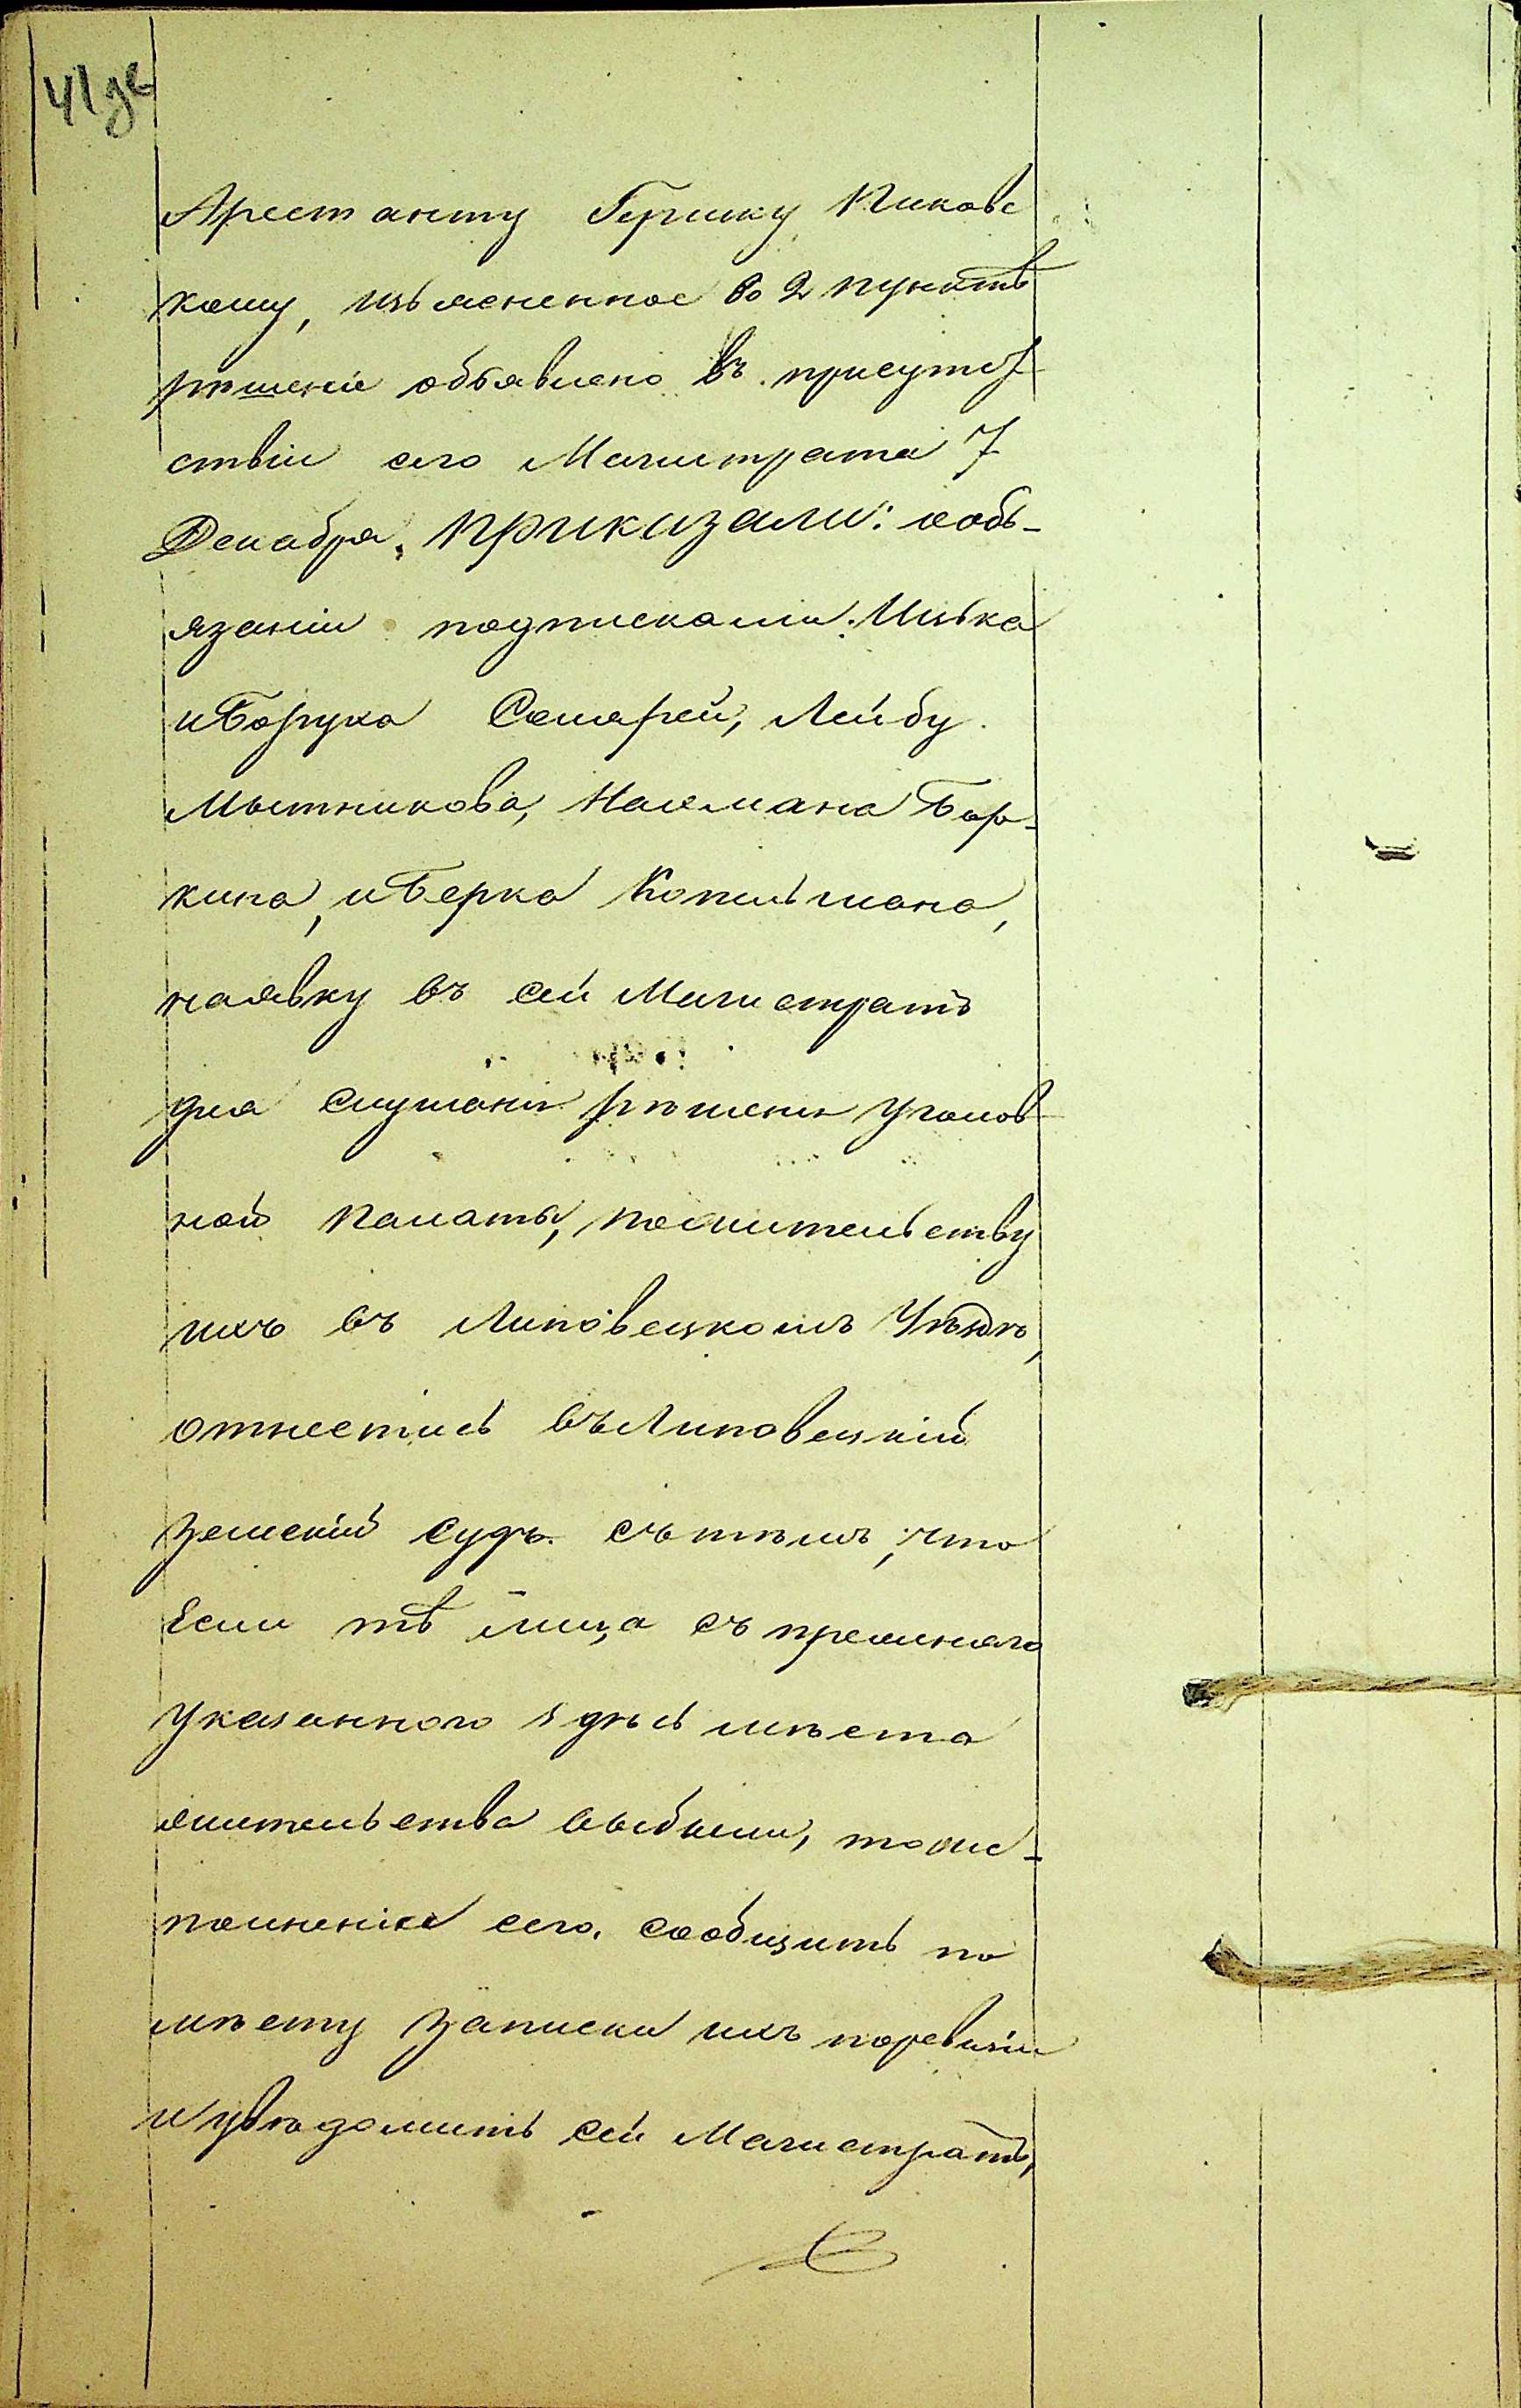 41 зв
Арестанту Гершку Пиковс
кому, изъясненное во 2 пунктѣ
рѣшеніе объявлено въ присутст
ствіи сего Магистрата 7
Декабря. Приказали: о обя-
язаніи подписками: Ицька
и Боруха Сошарей, Лейбу
Мытникова, Нахмана Бар-
кина, и Берка Копильмана,
на явку въ сей Магистратъ
для слушанія рѣшенія Уголов
ной Палаты, по жительству
ихъ въ Липовецкомъ Уѣздѣ,
отнестись въ Липовецкій
Земскій судъ съ тѣмъ, что
Если тѣ лица съ прежняго
указанного здѣсь мѣста
жительства выбыли, то ис-
полненіе сего, сообщить по
мѣсту записки ихъ по ревизіи
и увѣдомить сей Магистратъ,